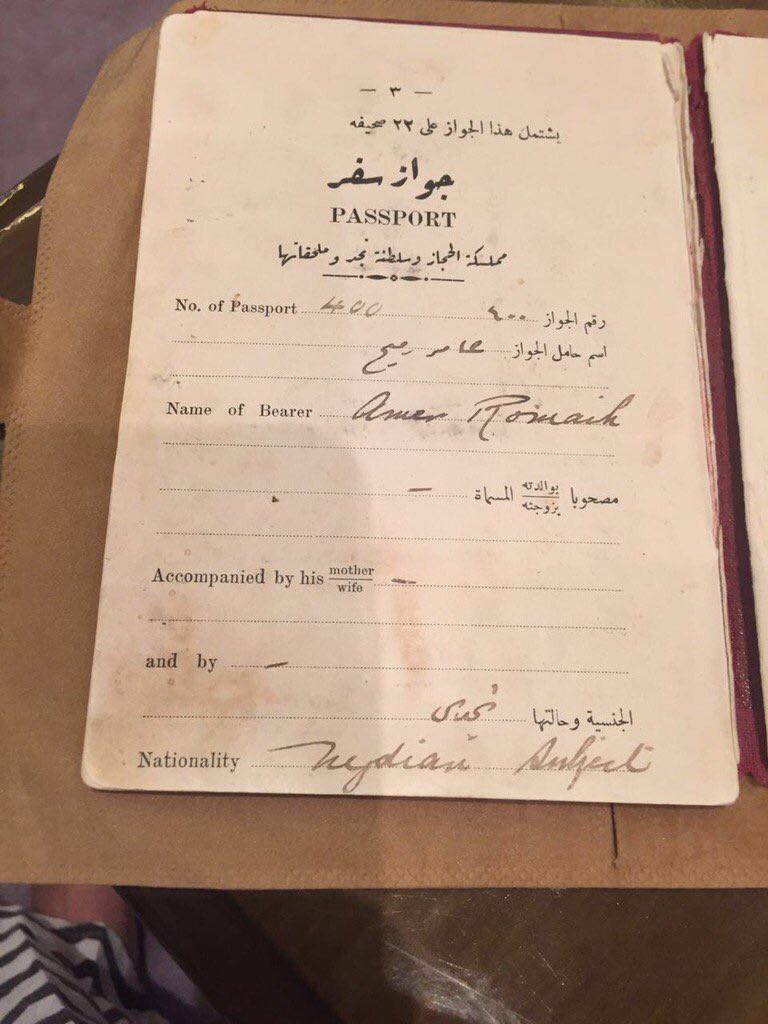 — ٣ —
يشتمل هذا الجواز على ٢٢ صحيفه
جواز سفر
PASSPORT
مملكة الحجاز وسلطنة نجد وملحقاتها
No. of Passport 400 رقم الجواز ٤٠٠
اسم حامل الجواز عامر رميح
Name of Bearer Amer Romaih
مصحوبا بوالدته / بزوجته المسماة —
Accompanied by his mother / wife —
and by —
الجنسية وحالتها نجدى
Nationality Nejdian Subject